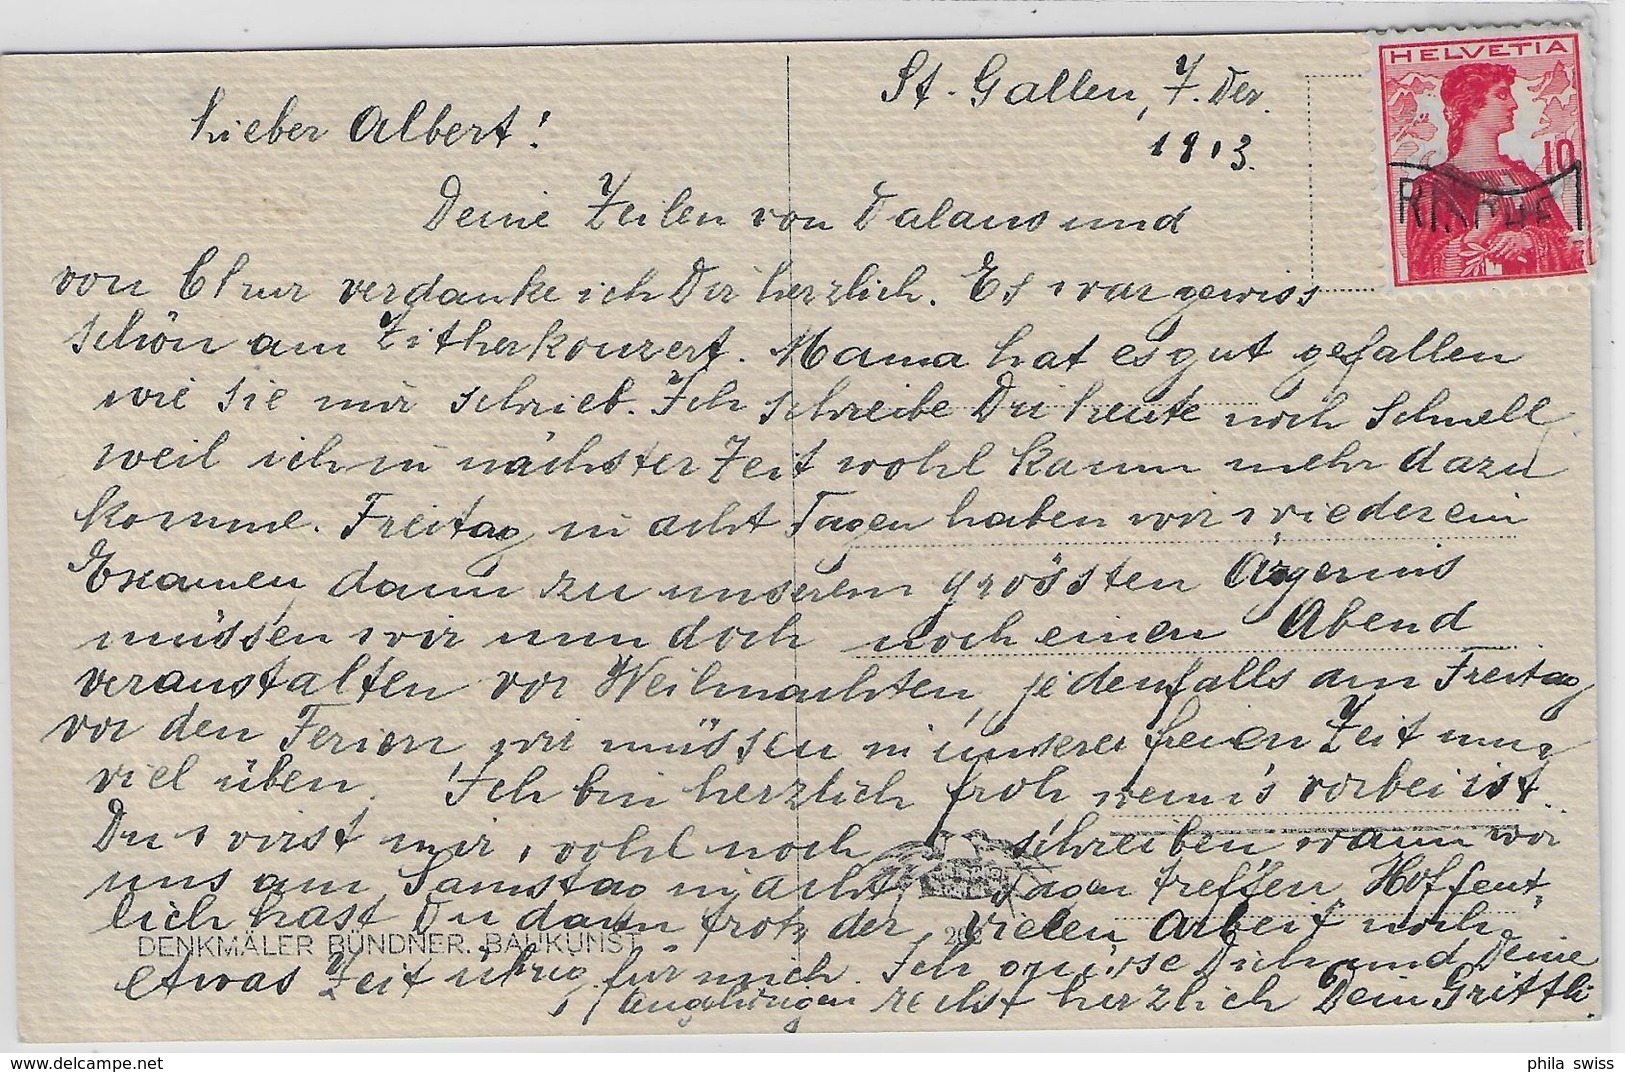 St. Gallen, 7. Dez.
1913.
HELVETIA
10
Lieber Albert!
Deine Zeilen von Valans und
von Chur verdanke ich Dir herzlich. Es war gewiss
schön am Zitherkonzert. Mama hat es gut gefallen
wie sie mir schrieb. Ich schreibe Dir heute noch schnell
weil ich in nächster Zeit wohl kaum mehr dazu
komme. Freitag in acht Tagen haben wir wieder ein
Examen, dann zu unserem grössten Ärgernis
müssen wir nun doch noch einen Abend
veranstalten vor Weihnachten, jedenfalls am Freitag
vor den Ferien, wir müssen in unserer freien Zeit nun
viel üben. Ich bin herzlich froh wenn's vorbei ist.
Du wirst mir wohl noch schreiben wann wir
uns am Samstag in acht Tagen treffen. Hoffent-
lich hast Du dann trotz der vielen Arbeit noch
DENKMÄLER BÜNDNER. BAUKUNST
etwas Zeit übrig für mich. Ich grüsse Dich und Deine
Angehörigen recht herzlich Dein Gritli.
phila swiss